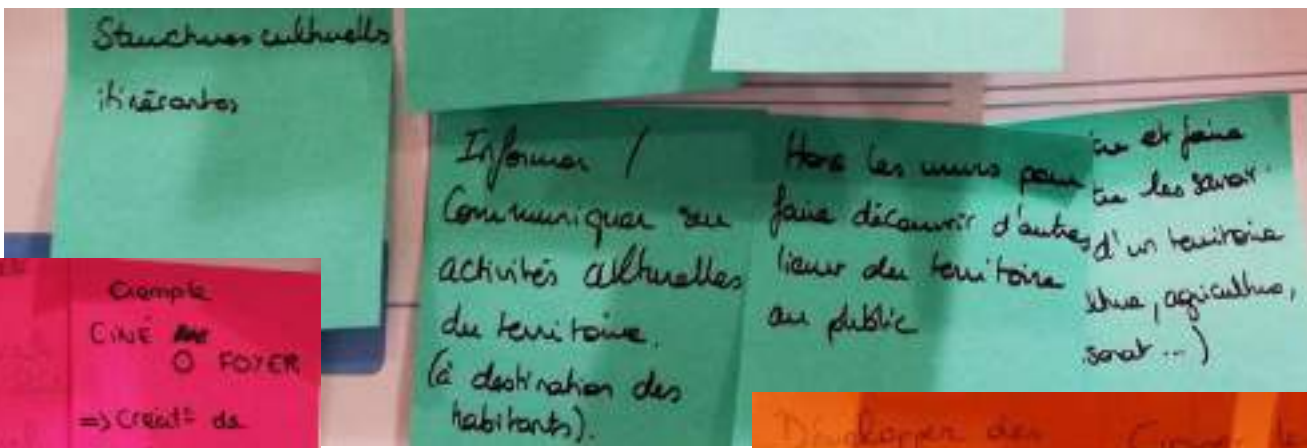 Structures culturelles
itinérantes
Informer /
Communiquer sur
activités culturelles
du territoire.
(à destination des
habitants).
Hors les murs pour
faire découvrir d'autres
lieux du territoire
au public
et faire
les savoir
d'un territoire
, agriculture,
Exemple
CINÉ
O FOYER
=> Créat° de
Développer des